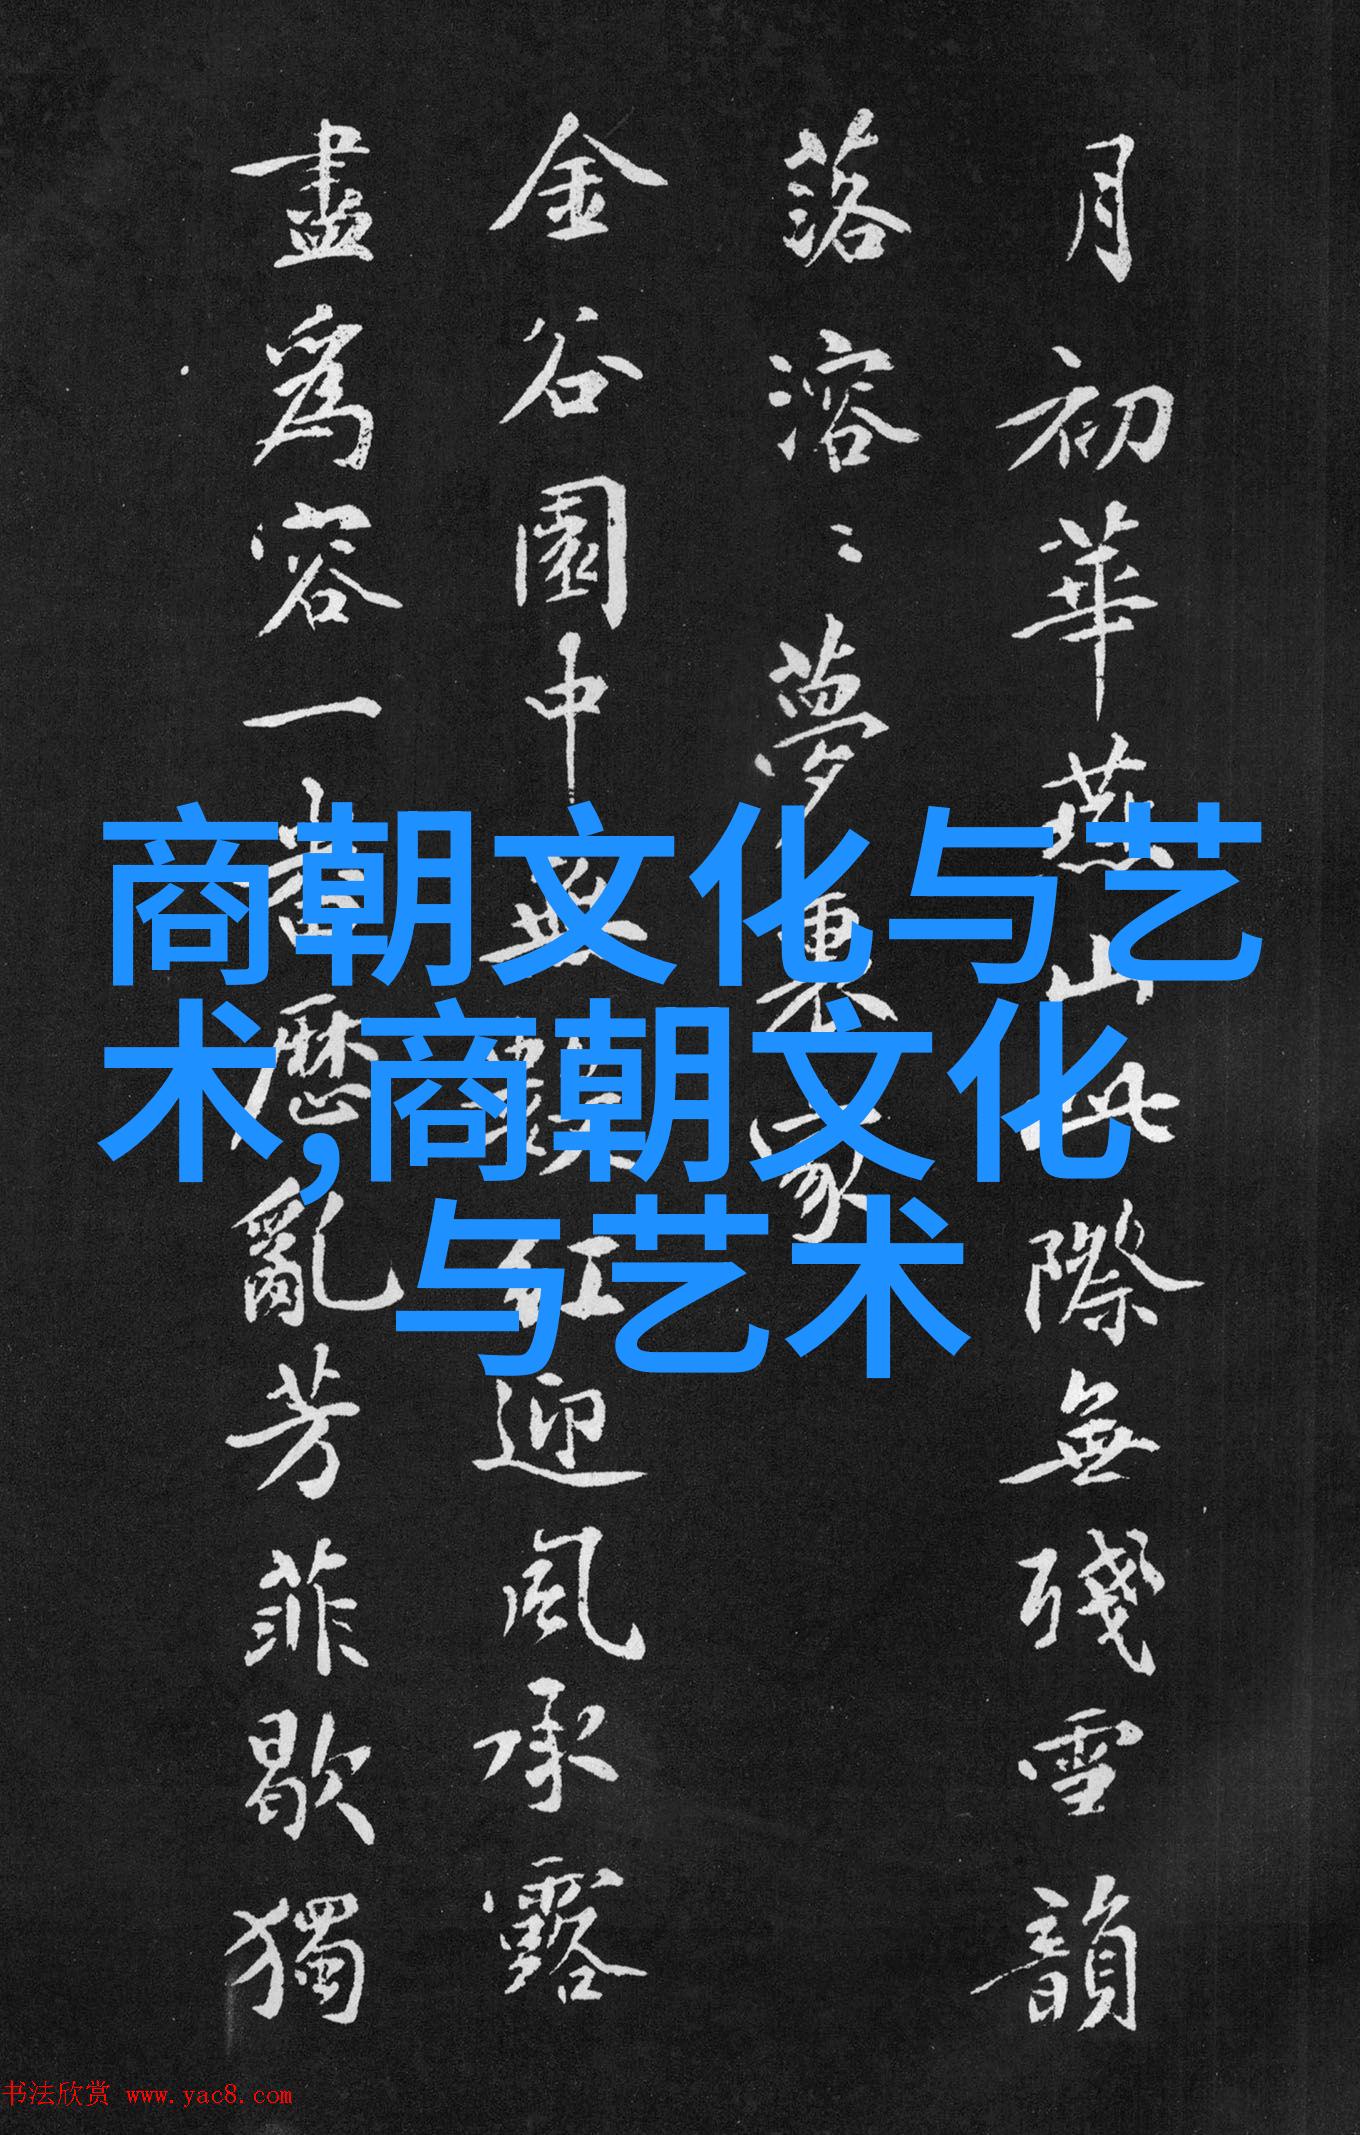 月初華燕山此際無殘雪韻
落溶〻夢裏家
金谷園中無數紅迎風承露
盡爲容一番歷亂芳菲歇獨
商朝文化与艺
术,商朝文化
与艺术
书法欣赏 www.yac8.com